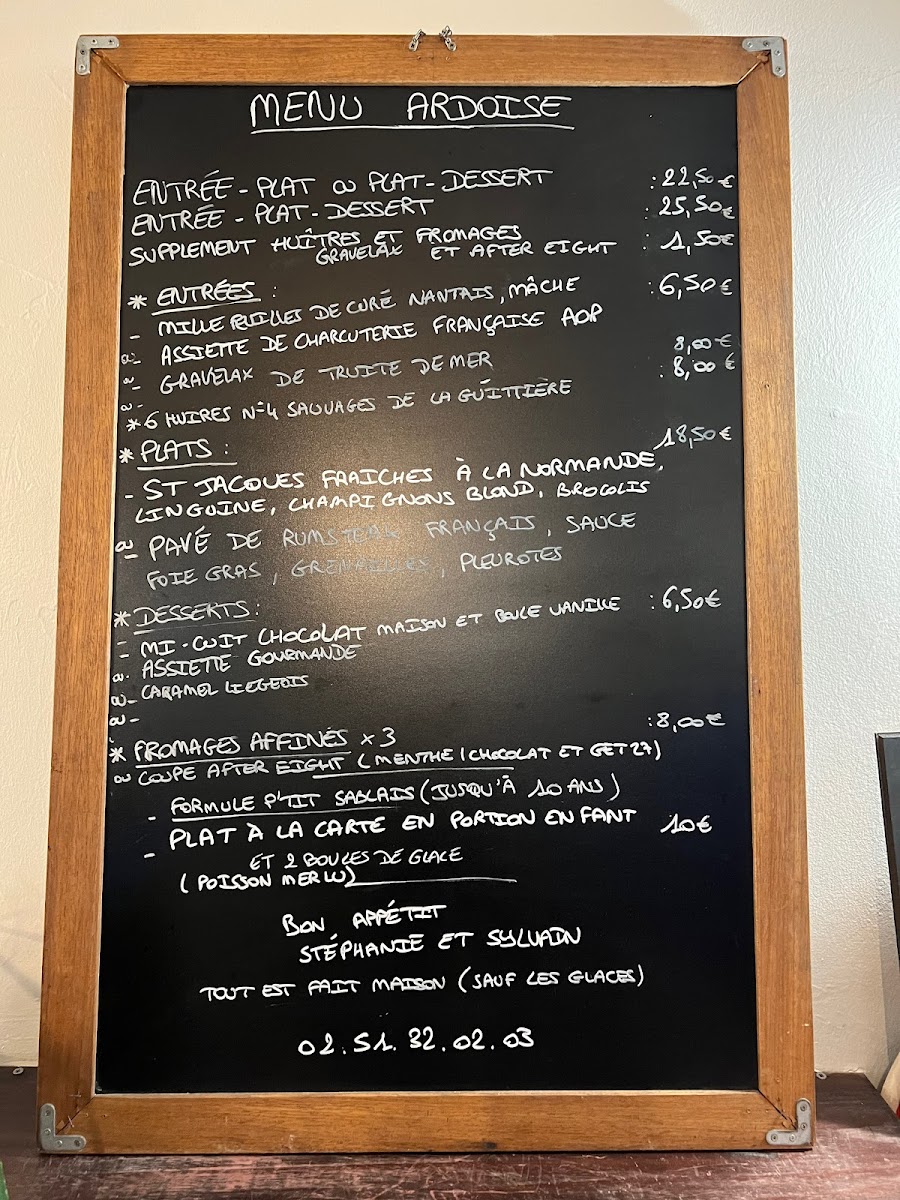 MENU ARDOISE
ENTRÉE - PLAT OU PLAT - DESSERT : 22,50€
ENTRÉE - PLAT - DESSERT : 25,50€
SUPPLEMENT HUÎTRES ET FROMAGES : 1,50€
GRAVELAX ET AFTER EIGHT
* ENTRÉES : : 6,50€
- MILLE FEUILLES DE CURÉ NANTAIS, MÂCHE
ou - ASSIETTE DE CHARCUTERIE FRANÇAISE AOP
ou - GRAVELAX DE TRUITE DE MER 8,00€
ou - * 6 HUIRES N°4 SAUVAGES DE LA GUITTIÈRE : 8,00€
* PLATS : 18,50€
- ST JACQUES FRAICHES À LA NORMANDE,
LINGUINE, CHAMPIGNONS BLOND, BROCOLIS
ou - PAVÉ DE RUMSTEAK FRANÇAIS, SAUCE
FOIE GRAS, GRENAILLES, PLEUROTES
* DESSERTS : : 6,50€
- MI-CUIT CHOCOLAT MAISON ET BOULE VANILLE
ou - ASSIETTE GOURMANDE
ou - CARAMEL LIEGEOIS
ou -
* FROMAGES AFFINÉS x 3 : 8,00€
ou COUPE AFTER EIGHT (MENTHE / CHOCOLAT ET GET 27)
- FORMULE P'TIT SABLAIS (JUSQU'À 10 ANS)
- PLAT À LA CARTE EN PORTION ENFANT 10€
ET 2 BOULES DE GLACE
(POISSON MERLU)
BON APPÉTIT
STÉPHANIE ET SYLVAIN
TOUT EST FAIT MAISON (SAUF LES GLACES)
02.51.32.02.03